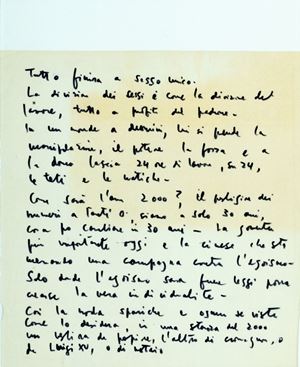 Tutto finirà a sesso unico.
La divisione dei sessi è come la divisione del
lavoro, tutto a profitto del padrone -
In un mondo a uomini, lui si prende la
il potere la forza e a
la donna lascia 24 ore di lavoro, su 24,
le tette e le natiche -
Come sarà l'anno 2000? il
numeri a tanti 0, siamo a solo 30 anni,
cosa può cambiare in 30 anni - La guerra
più importante oggi è la cinese che sta
menando una campagna contro l'egoismo -
Solo dove l'egoismo sarà fuori legge potrà
la vera individualità -
Così la moda sparirà e ognuno si veste
come lo desidera, in una stanza del 2000
un vestirà di papiro, l'altro di o
da Luigi XV, o di notaio